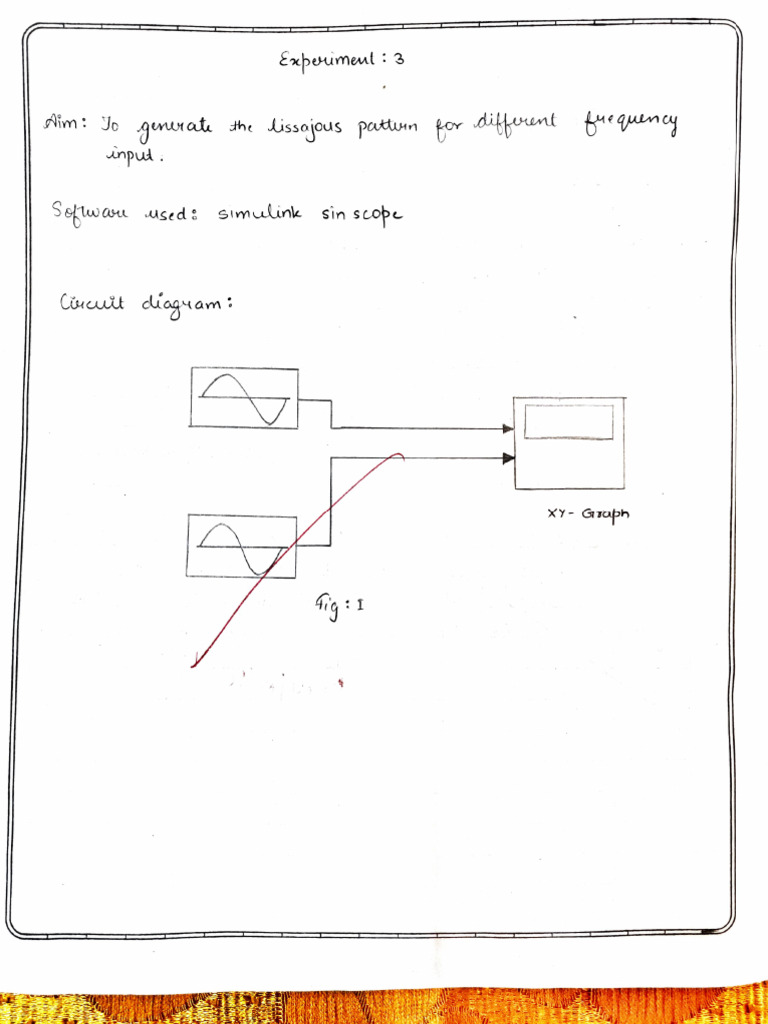 Experiment : 3
Aim: To generate the lissajous pattern for different frequency
input.
Software used: simulink sin scope
Circuit diagram:
XY- Graph
Fig : I